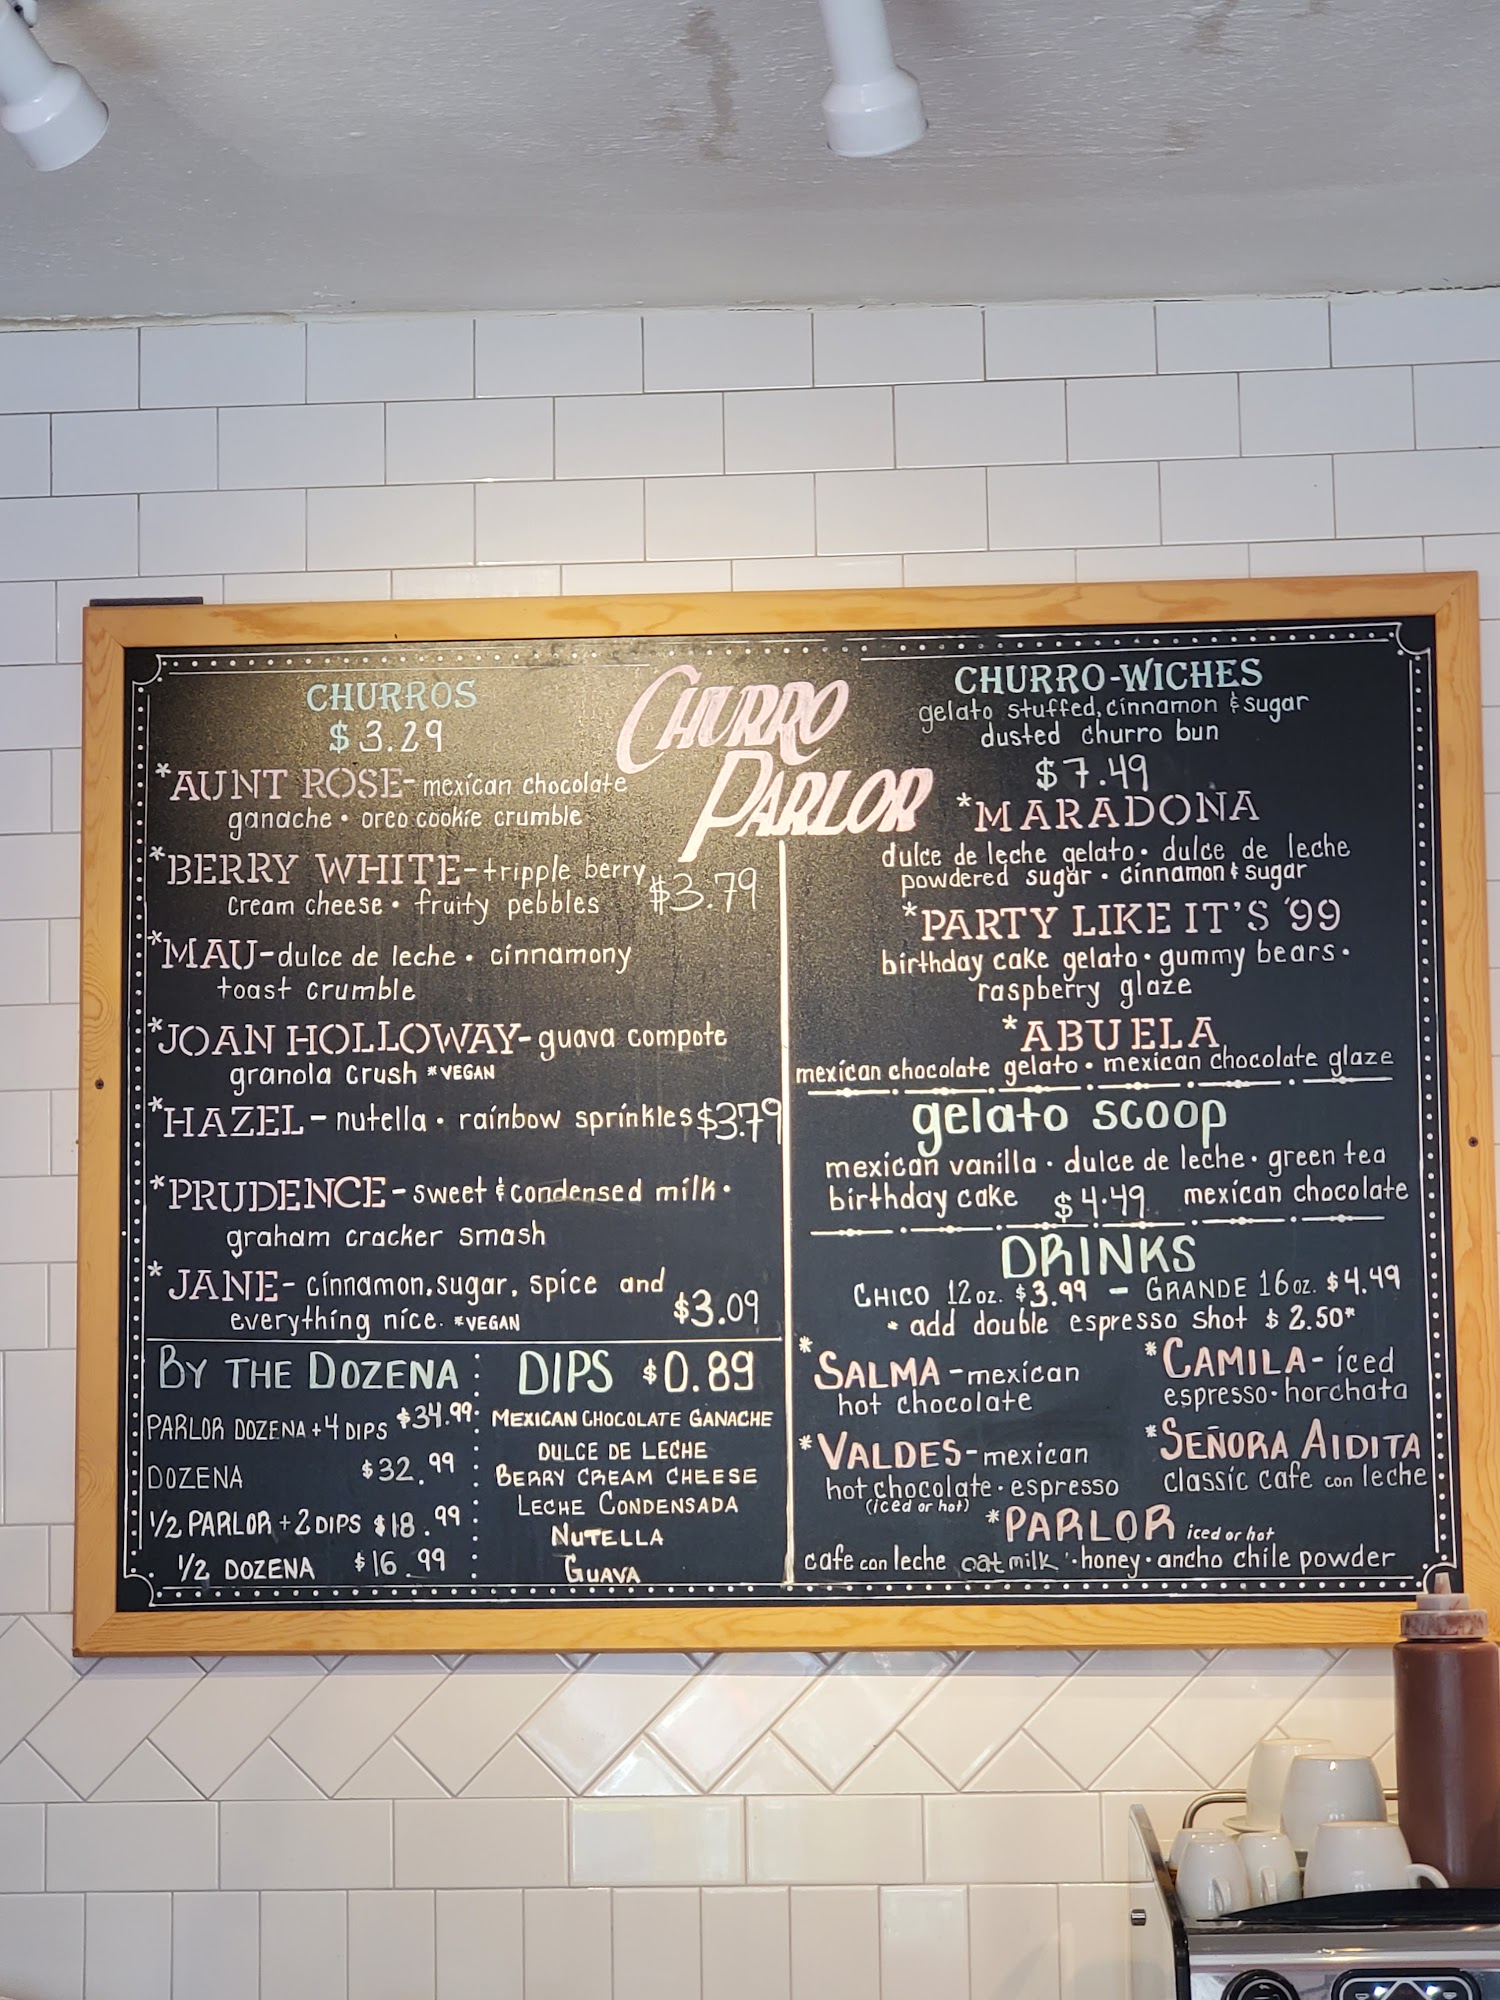 CHURRO
PARLOR
CHURROS
$3.29
*AUNT ROSE- mexican chocolate
ganache • oreo cookie crumble
*BERRY WHITE- tripple berry
cream cheese • fruity pebbles $3.79
*MAU- dulce de leche • cinnamony
toast crumble
*JOAN HOLLOWAY- guava compote
granola crush *VEGAN
*HAZEL- nutella • rainbow sprinkles $3.79
*PRUDENCE- sweet & condensed milk •
graham cracker smash
*JANE- cinnamon, sugar, spice and
everything nice. *VEGAN $3.09
BY THE DOZENA
PARLOR DOZENA + 4 DIPS $34.99
DOZENA $32.99
1/2 PARLOR + 2 DIPS $18.99
1/2 DOZENA $16.99
DIPS $0.89
MEXICAN CHOCOLATE GANACHE
DULCE DE LECHE
BERRY CREAM CHEESE
LECHE CONDENSADA
NUTELLA
GUAVA
CHURRO-WICHES
gelato stuffed, cinnamon & sugar
dusted churro bun
$7.49
*MARADONA
dulce de leche gelato • dulce de leche
powdered sugar • cinnamon & sugar
*PARTY LIKE IT'S '99
birthday cake gelato • gummy bears •
raspberry glaze
*ABUELA
mexican chocolate gelato • mexican chocolate glaze
gelato scoop
mexican vanilla • dulce de leche • green tea
birthday cake $4.49 mexican chocolate
DRINKS
CHICO 12oz. $3.99 – GRANDE 16oz. $4.49
* add double espresso shot $2.50*
*SALMA- mexican
hot chocolate
*CAMILA- iced
espresso • horchata
*VALDES- mexican
hot chocolate • espresso
(iced or hot)
*SEÑORA AIDITA
classic cafe con leche
*PARLOR iced or hot
cafe con leche oat milk • honey • ancho chile powder